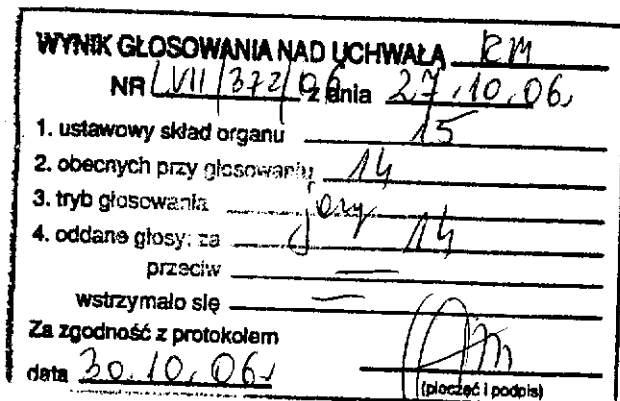 WYNIK GŁOSOWANIA NAD UCHWAŁĄ RM
NR LVII/372/06 z dnia 27.10.06.
1. ustawowy skład organu 15
2. obecnych przy głosowaniu 14
3. tryb głosowania jawny
4. oddane głosy: za 14
przeciw —
wstrzymało się —
Za zgodność z protokołem
data 30.10.06.
(pieczęć i podpis)